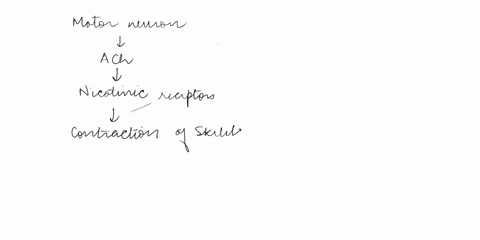 Motor neuron
↓
ACh
↓
Nicotinic receptors
↓
Contraction of